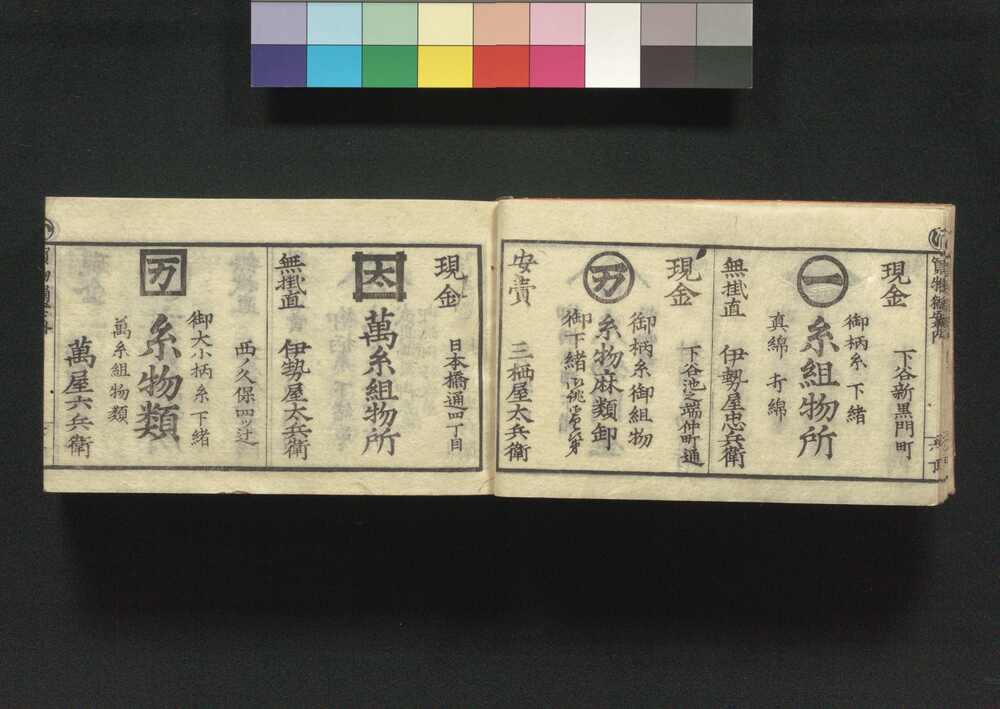 現金
下谷新黒門町
一
御柄糸下緒
糸組物所
真綿 打綿
無掛直
伊勢屋忠兵衛
現金
下谷池之端仲町通
万
御柄糸御組物
糸物麻類卸
御下緒
安賣
三栖屋太兵衛
現金
日本橋通四丁目
太
萬糸組物所
無掛直
伊勢屋太兵衛
西ノ久保四ッ辻
万
御大小柄糸下緒
糸物類
萬糸組物類
萬屋六兵衛